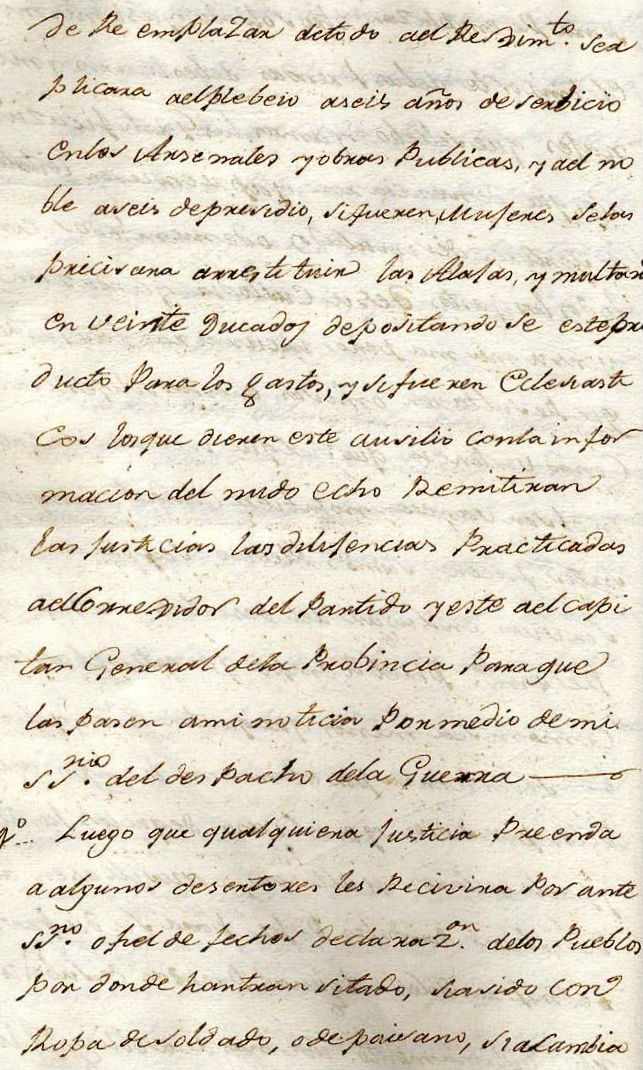 de Re emplazar detodo ael Regim.to sea
plicara aelplebeio aseis años de serbicio
enlos Arsenales yobras Publicas, y ael no
ble aseis depresidio, sifueren Mujeres selas
precisara arrestituir las Alajas, y multara
en veinte Ducados depositandose estepro
ducto Para los gastos, y sifueren Eclesiasti
cos losque dieren este ausilio conla infor
macion del nudo echo Remitiran
las Justicias las dilijencias Practicadas
aelCorregidor del Partido yeste ael capi
tan General dela Probincia Paraque
las pasen ami noticia Pormedio de mi
SS.rio del despacho dela Guerra
Luego que qualquiera Justicia Prenda
aalgunos desertores les Recivira Por ante
SS.no ofiel de fechos declaraz.on delos Pueblos
por donde hantran sitado, siasido con
Ropa de soldado, ode paisano, sialambia